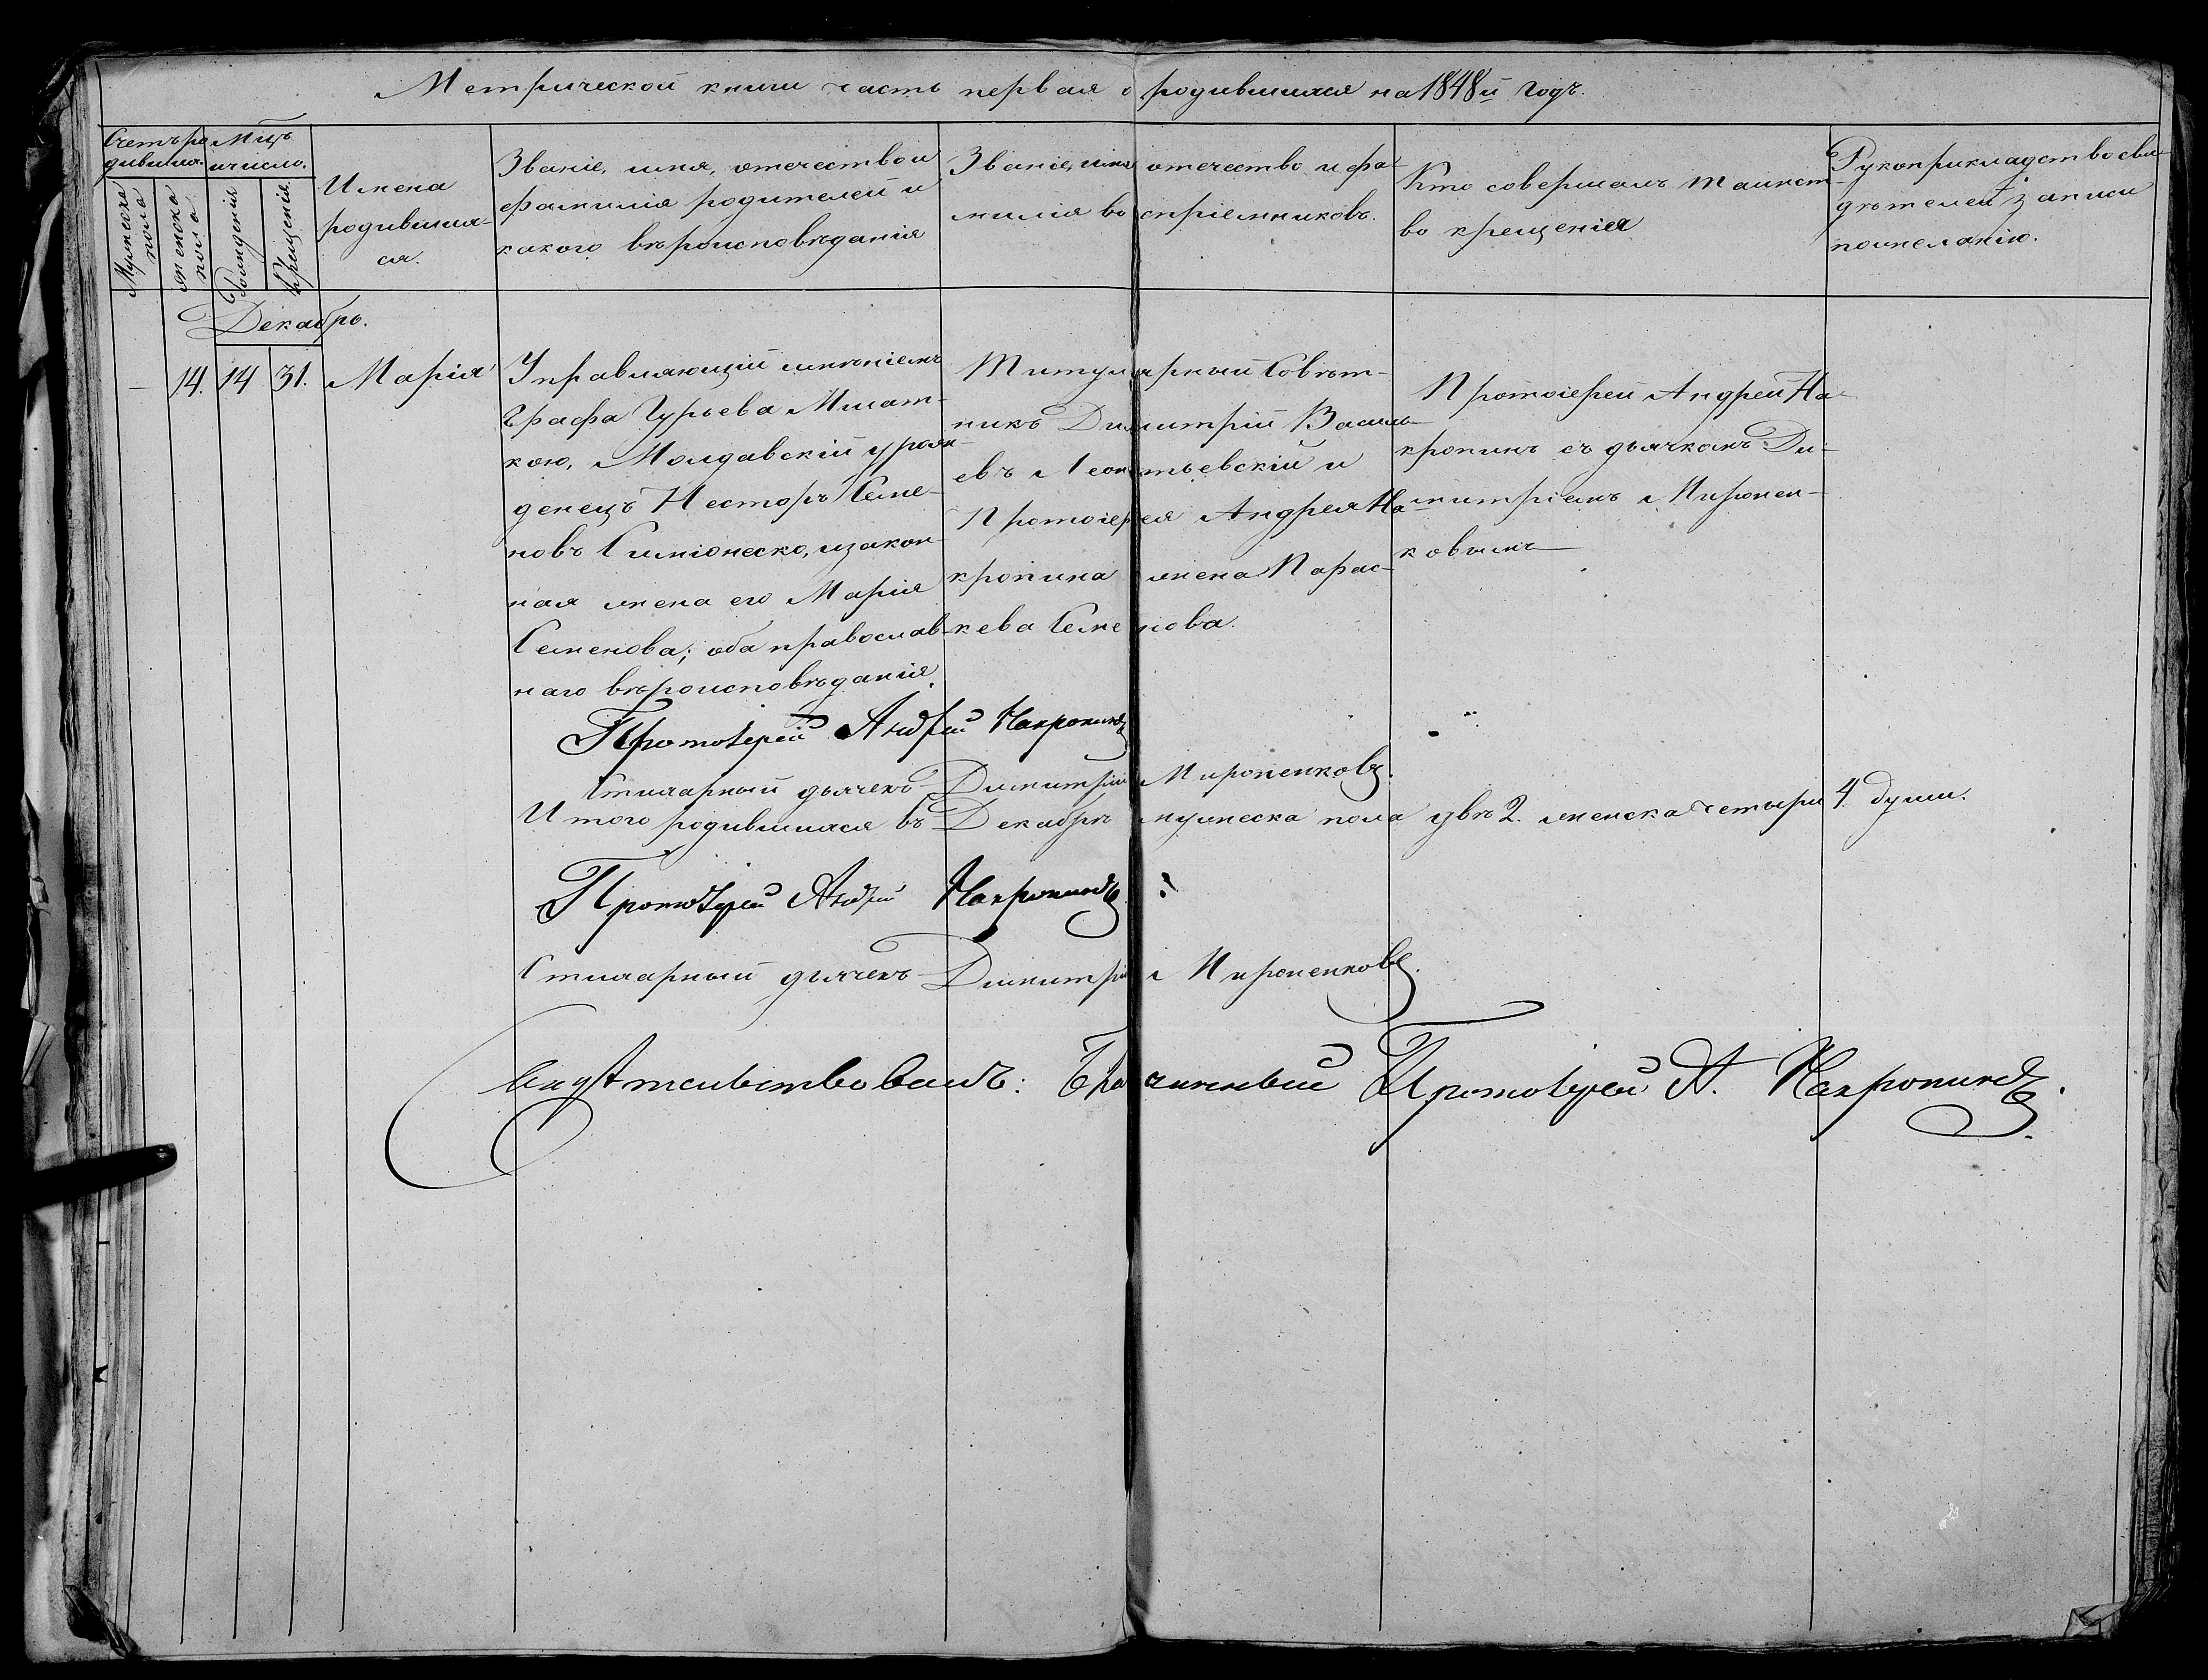 Метрической книги часть первая о родившихся на 1848й годъ.
Счетъ родивших.
Мужеска пола
Женска пола
Мцъ и число.
Рожденія
Крещенія.
Имена
родивших-
ся.
Званіе, имя, отечество и
фамилія родителей и
какого вѣроисповѣданія
Званіе, имя отечество и фа-
милія воспріемниковъ.
Кто совершалъ таинст-
во крещенія
Рукоприкладство сви-
дѣтелей записи
по желанію.
Декабрь.
— 14. 14 31. Марія
Управляющій имѣніемъ
Графа Гурьева
Молдавскій урож-
денецъ Несторъ Семе-
новъ Симіонеско, и закон-
ная жена его Марія
Семенова; оба православ-
наго вѣроисповѣданія.
Титулярный Совѣт-
никъ Димитрій Василь-
евъ Леонтьевскій и
Протоіерея Андрея На-
кропина жена Парас-
кева Семенова.
Протоіерей Андрей На-
кропинъ съ дьячкомъ Ди-
митріемъ Миронен-
ковымъ
Протоіерей Андрей Накропинъ
Стихарный дьячекъ Димитрій Мироненковъ.
Итого родившихся въ Декабрѣ мужеска пола двѣ 2. женска четыри 4 души.
Протоіерей Андрей Накропинъ
Стихарный дьячекъ Димитрій Мироненковъ.
Свидѣтельствовалъ: Благочинный Протоіерей А. Накропинъ.